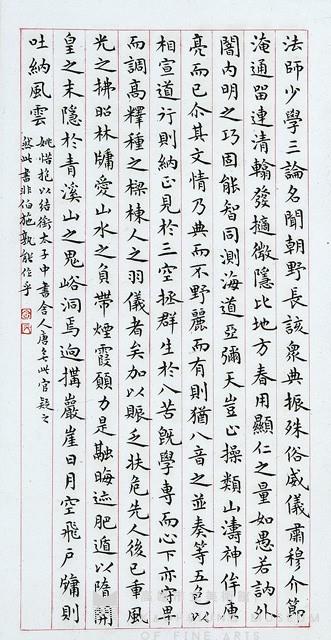 法師少學三論名聞朝野長該衆典振殊俗威儀肅穆介節
淹通留連清翰發擿微隱比地方春用顯仁之量如愚若訥外
闇內明之巧固能智同測海道亞彌天豈止操類山濤神侔庾
亮而已尒其文情乃典而不野麗而有則猶八音之並奏等五色以
相宣道行則納正見於三空拯群生於八苦既學專而心下亦守卑
而調高釋種之樑棟人之羽儀者矣加以賑乏扶危先人後己重風
光之拂昭林牖愛山水之負帶煙霞願力是融晦迹肥遁以隋開
皇之末隱於青溪山之鬼峪洞焉迥構巖崖日月空飛戶牖則
吐納風雲
姚惜抱以結銜太子中書舍人唐無此官疑之
然此書非伯施孰能作乎
OF FINE ARTS